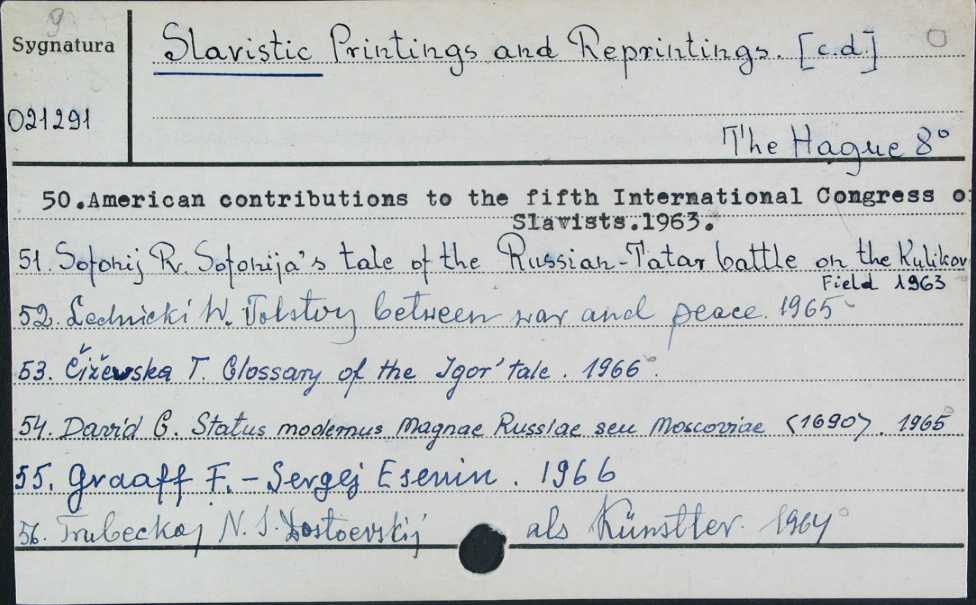 9
Sygnatura
021291
Slavistic Printings and Reprintings. [c.d.]
The Hague 8°
50.American contributions to the fifth International Congress o
Slavists.1963.
51. Sofonij R. Sofonija's tale of the Russian-Tatar battle on the Kulikov
Field 1963
52. Lednicki W. Tolstoy between war and peace. 1965
53. Čiževska T. Glossary of the Igor' tale. 1966.
54. David G. Status modernus Magnae Russiae seu Moscoviae <1690>. 1965
55. Graaff F. - Sergej Esenin. 1966
56. Trubeckoj N. S. Dostoevskij als Künstler. 1964